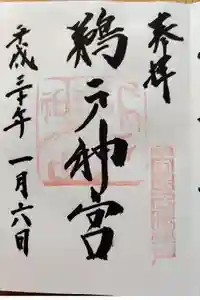 奉拝
鵜戸神宮
平成三十年一月六日